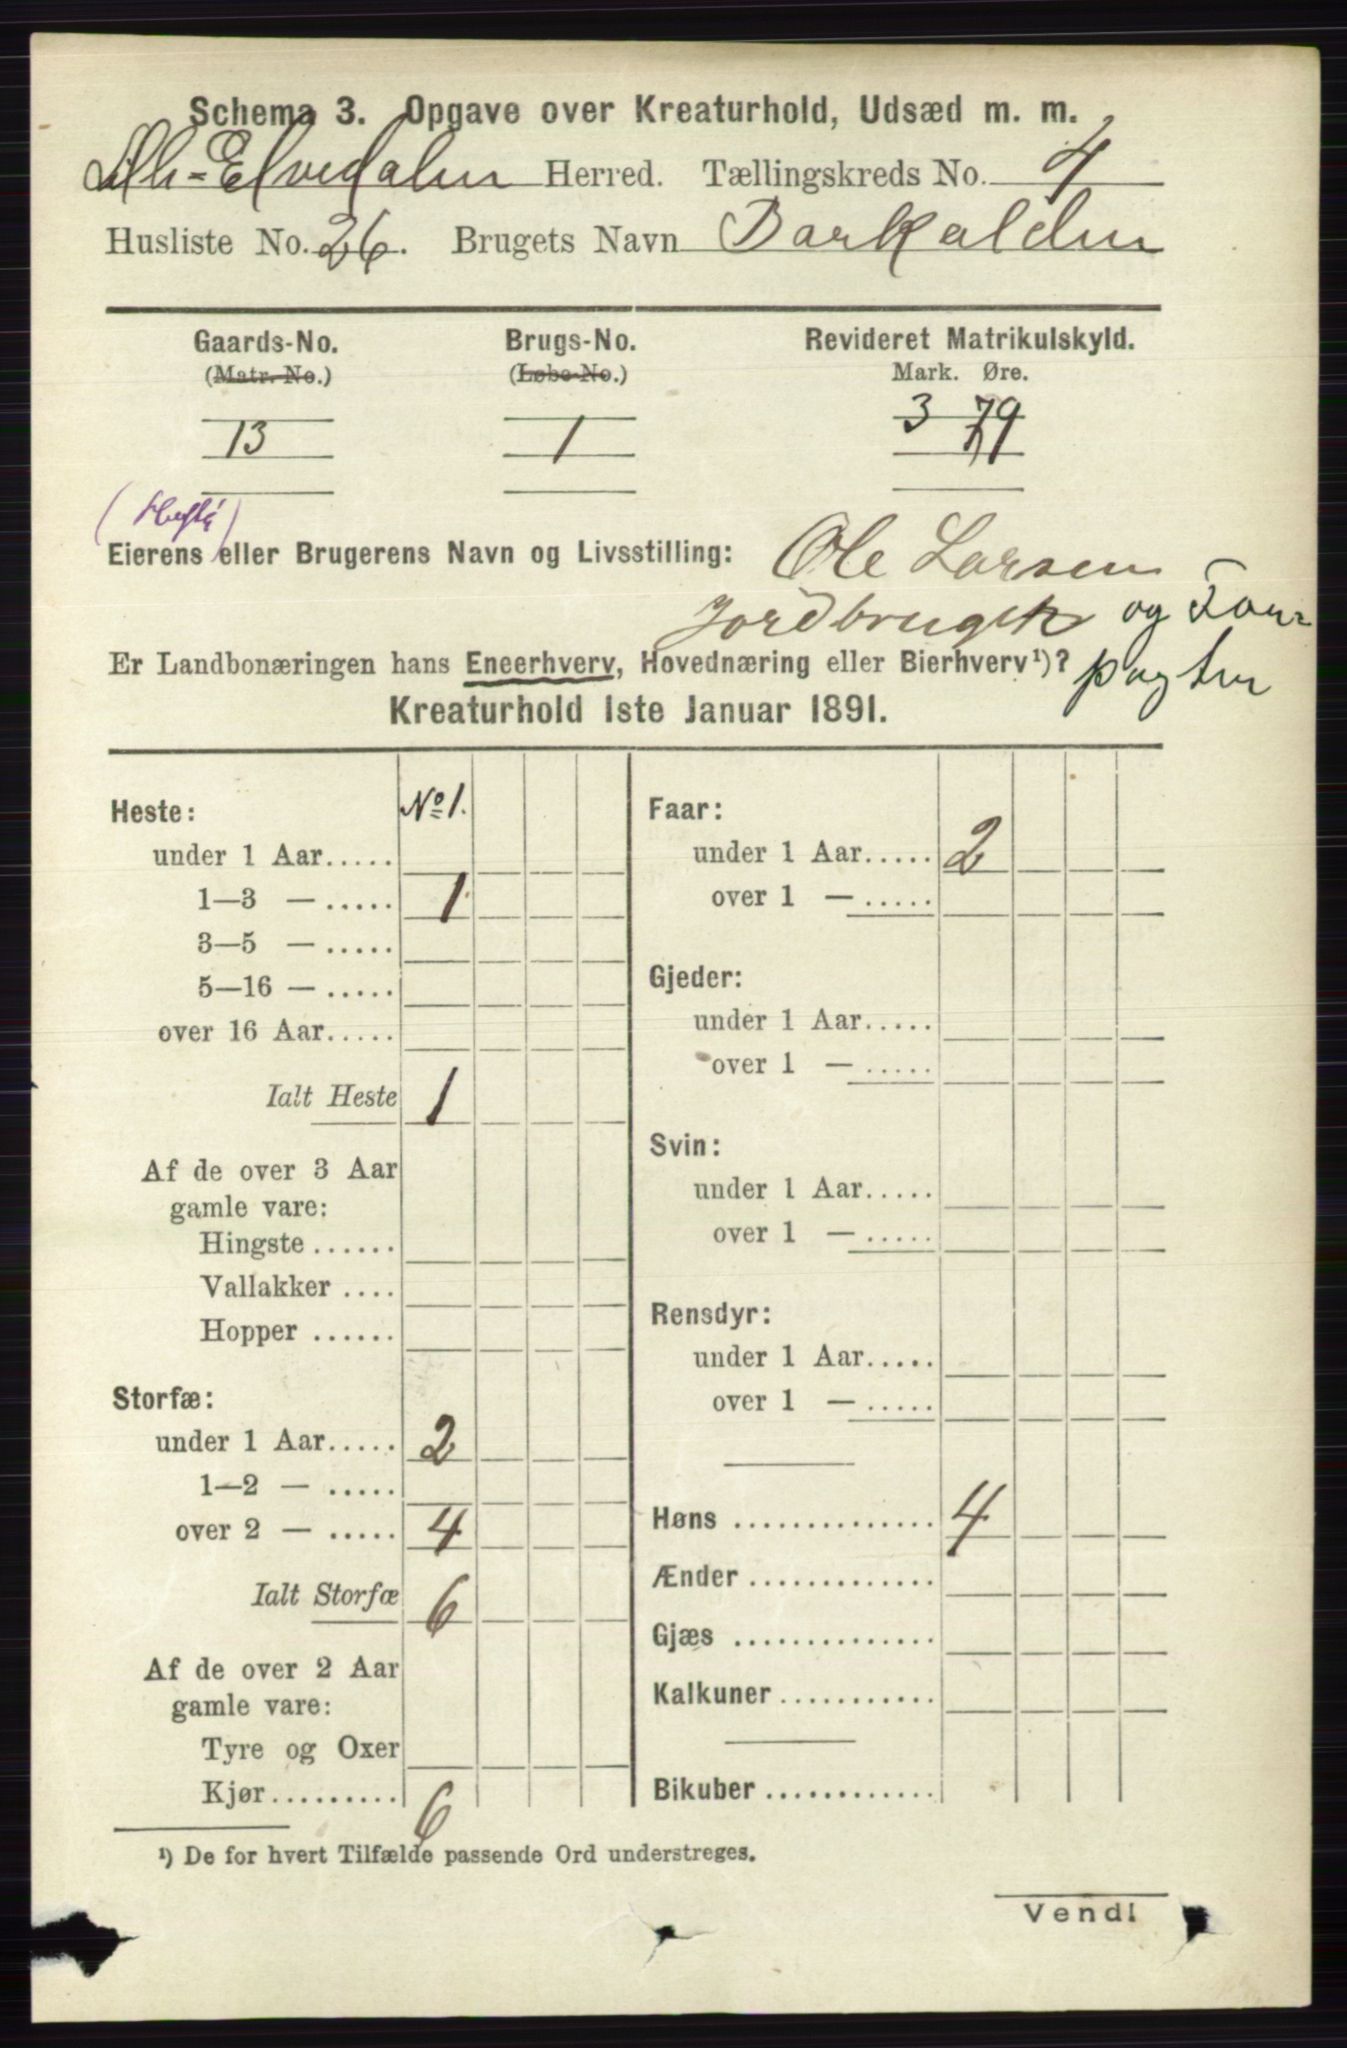 Schema 3. Opgave over Kreaturhold, Udsæd m. m.
Elvedalen Herred. Tællingskreds No. 4
Husliste No. 26. Brugets Navn Barkalden
Gaards-No. Brugs-No. Revideret Matrikulskyld.
(Matr.-No.) (Løbe-No.) Mark. Øre.
13 1 3 79
Eierens eller Brugerens Navn og Livsstilling: Ole Larsen
Jordbruger og For-
Er Landbonæringen hans Eneerhverv, Hovednæring eller Bierhverv¹)? pagter
Kreaturhold 1ste Januar 1891.
Heste: No 1.
under 1 Aar.....
1—3 — ..... 1
3—5 — .....
5—16 — .....
over 16 Aar.....
Ialt Heste 1
Af de over 3 Aar
gamle vare:
Hingste ......
Vallakker ....
Hopper ......
Storfæ:
under 1 Aar..... 2
1—2 — .....
over 2 — ..... 4
Ialt Storfæ 6
Af de over 2 Aar
gamle vare:
Tyre og Oxer
Kjør......... 6
Faar:
under 1 Aar..... 2
over 1 — .....
Gjeder:
under 1 Aar.....
over 1 — .....
Svin:
under 1 Aar.....
over 1 — .....
Rensdyr:
under 1 Aar.....
over 1 — .....
Høns .............. 4
Ænder .............
Gjæs ..............
Kalkuner ...........
Bikuber .............
¹) De for hvert Tilfælde passende Ord understreges.
Vend!